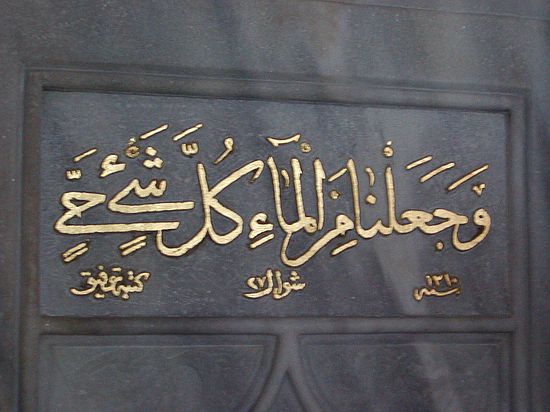 وَجَعَلْنَا مِنَ الْمَآءِ كُلَّ شَيْءٍ حَيٍّ
سنه ١٣١٠ شوال ٢٧ كتبه توفيق